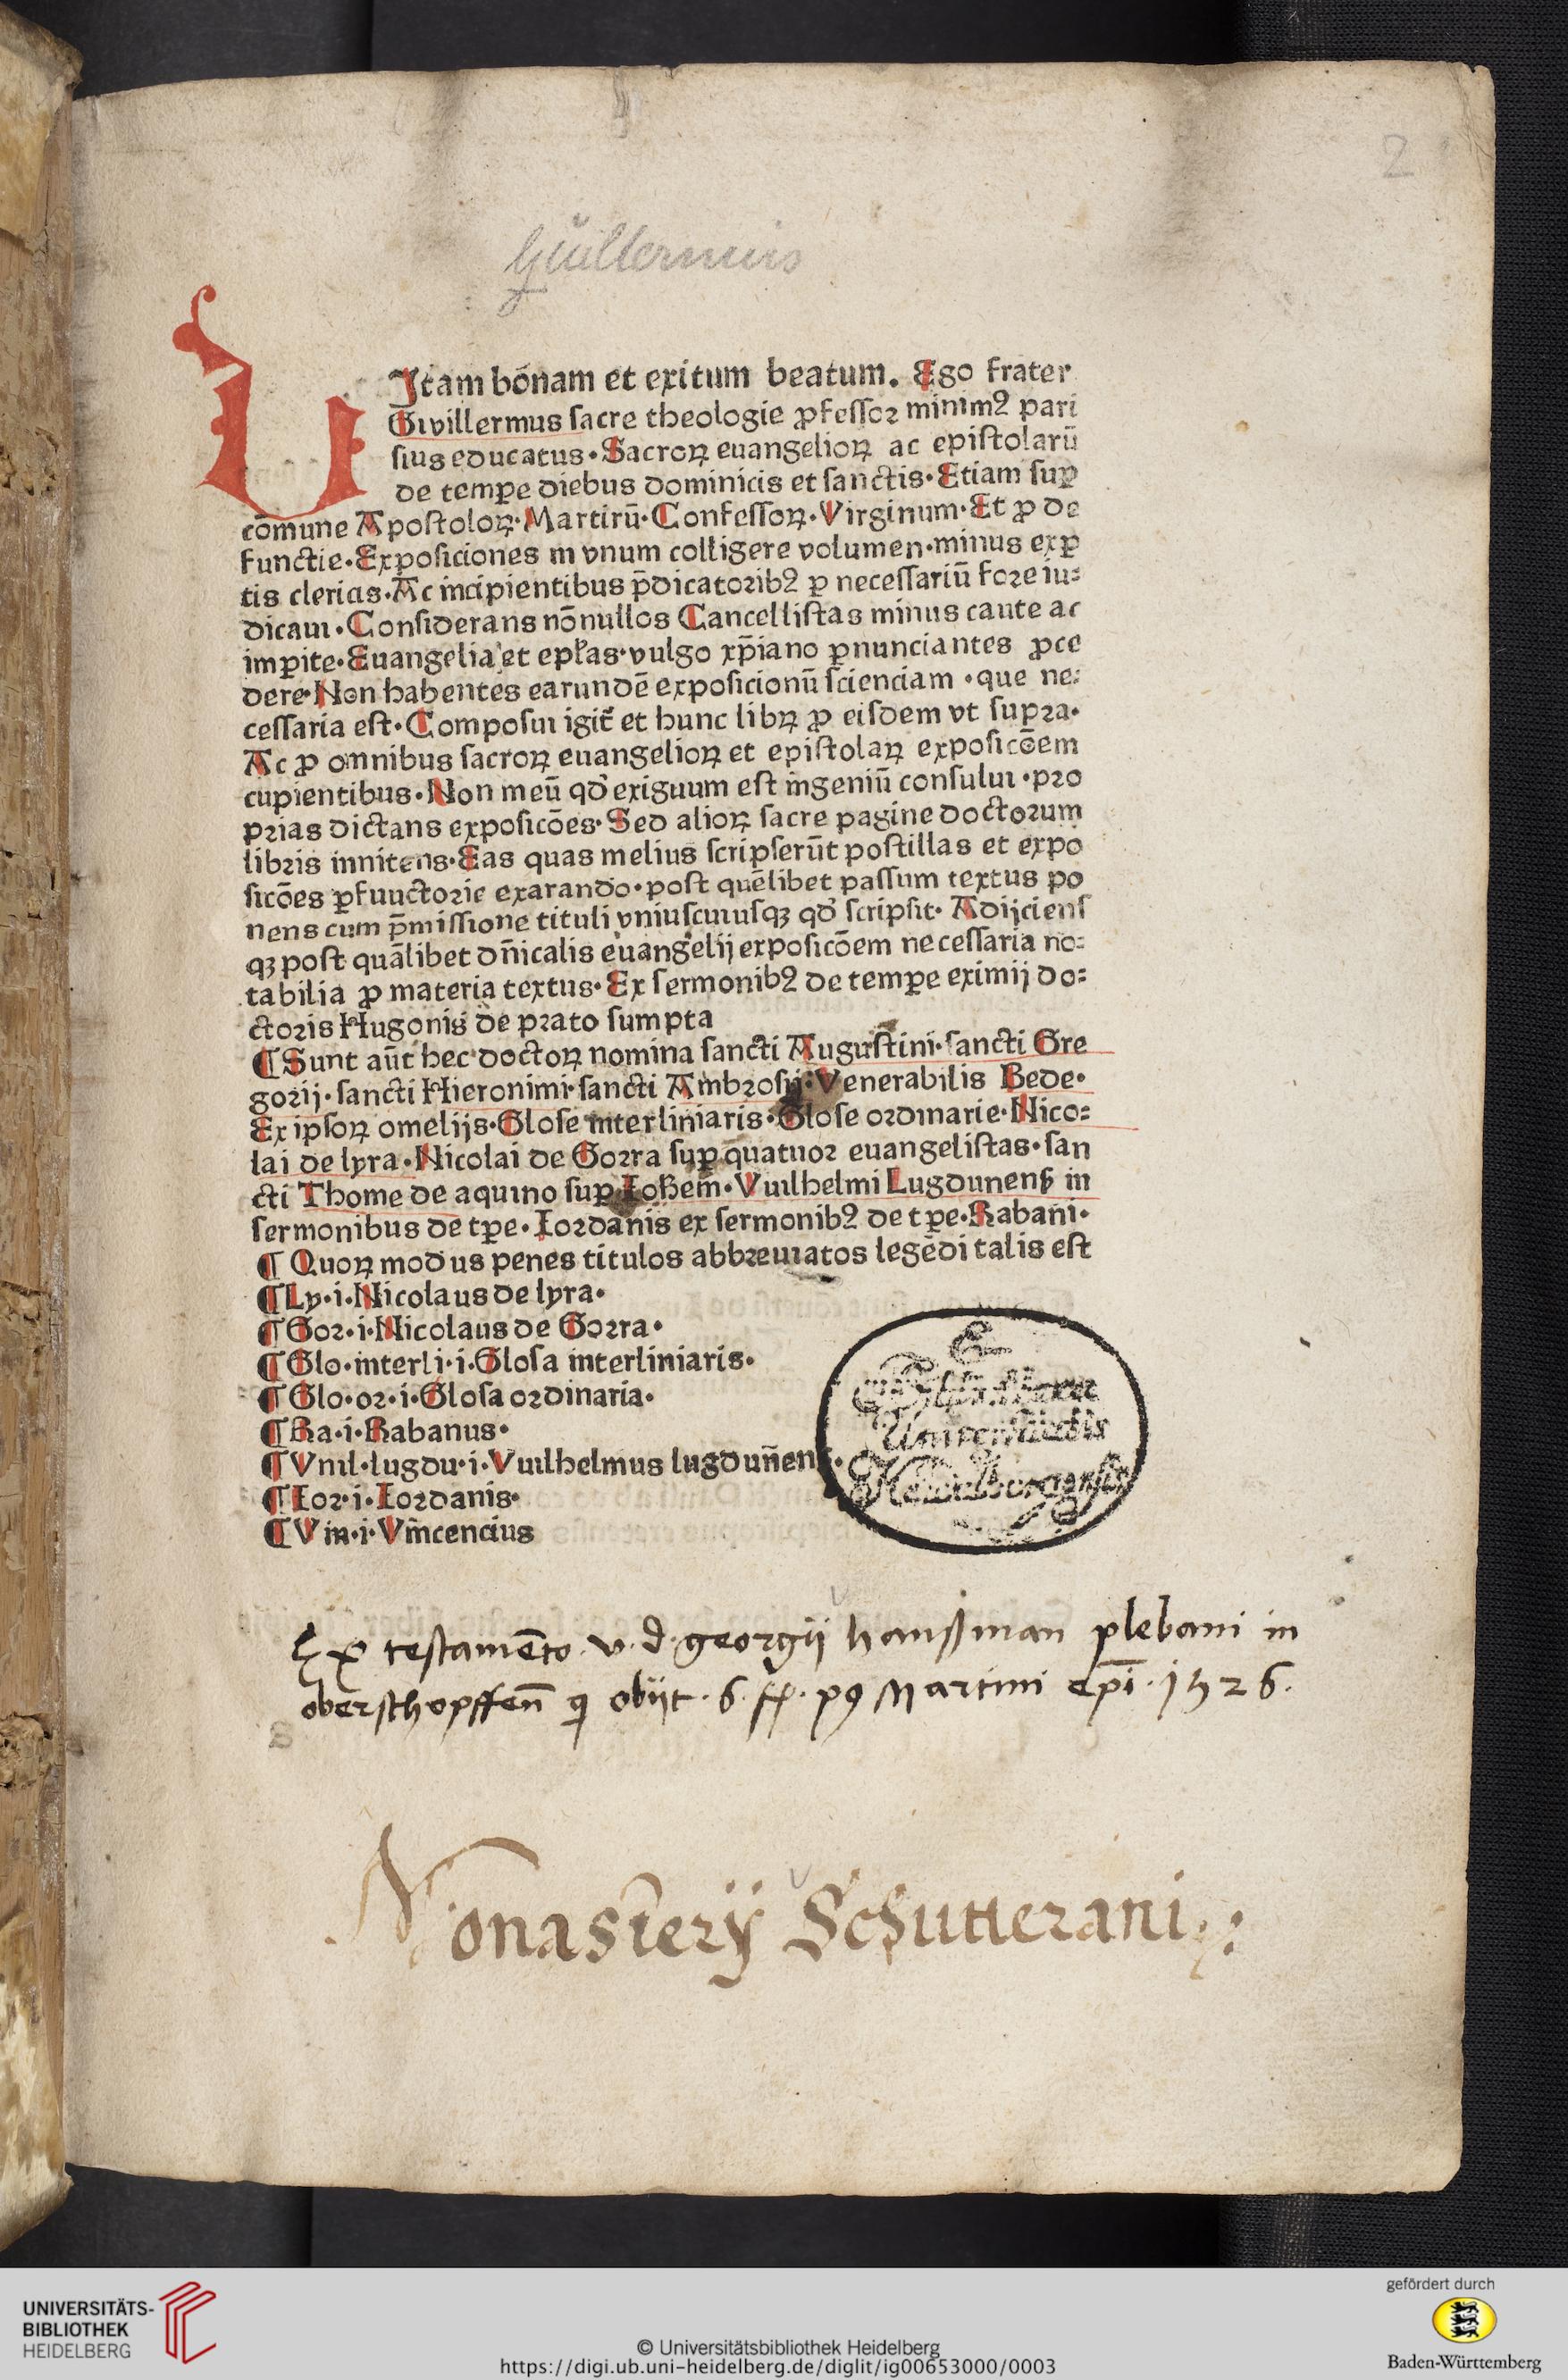 2
Guillermus
VItam bōnam et exitum beatum. Ego frater
Gwillermus sacre theologie ꝓfessoꝛ minimꝰ pari
sius educatus·Sacroꝝ euangelioꝝ ac epistolarū
de tempe diebus dominicis et sanctis·Etiam sup̱
cōmune Apostoloꝝ·Martirū·Confessoꝝ·Virginum·Et ꝓ de
functis·Exposiciones in vnum colligere volumen·minus exꝑ
tis clericis·Ac incipientibus p̄dicatoꝛibꝰ ꝑ necessariū foꝛe iu⸗
dicaui·Considerans nōnullos Cancellistas minus caute ac
impite·Euangelia et epl̄as·vulgo xp̄iano ꝓnunciantes ꝓce
dere·Non habentes earundē exposicionū scienciam·que ne⸗
cessaria est·Composui igit̄ et hunc libꝝ ꝓ eisdem vt supꝛa·
Ac ꝓ omnibus sacroꝝ euangelioꝝ et epistolaꝝ exposicōem
cupientibus·Non meū qd̛ exiguum est ingeniū consului·pꝛo
pꝛias dictans exposicōes·Sed alioꝝ sacre pagine doctoꝛum
libꝛis innitens·Eas quas melius scripserūt postillas et expo
sicōes ꝑfuuctoꝛie exarando·post quēlibet passum textus po
nens cum p̄missione tituli vniuscuiusqꝫ qd̛ scripsit·Adijciens
qꝫ post quālibet dn̄icalis euangelij exposicōem necessaria no⸗
tabilia ꝓ materia textus·Ex sermonibꝰ de tempe eximij do⸗
ctoꝛis Hugonis de pꝛato sumpta
¶Sunt aūt hec doctoꝝ nomina sancti Augustini·sancti Gre
goꝛij·sancti Hieronimi·sancti Ambꝛosij·Venerabilis Bede·
Ex ipsoꝝ omelijs·Glose interliniaris·Glose oꝛdinarie·Nico⸗
lai de lyra·Nicolai de Goꝛra sup̱ quatuoꝛ euangelistas·san
cti Thome de aquino sup̱ Ioh̄em·Vuilhelmi Lugdunens̄ in
sermonibus de tpe·Ioꝛdanis ex sermonibꝰ de tpe·Rabani·
¶Quoꝝ modus penes titulos abbꝛeuiatos legēdi talis est
¶Ly·i·Nicolaus de lyra·
¶Goꝛ·i·Nicolaus de Goꝛra·
¶Glo·interli·i·Glosa interliniaris·
¶Glo·oꝛ·i·Glosa oꝛdinaria·
¶Ra·i·Rabanus·
¶Vuil·lugdu·i·Vuilhelmus lugdun̄ens·
¶Ioꝛ·i·Ioꝛdanis·
¶Vin·i·Vincencius
E
Bibliotheca
Universitatis
Heidelbergensis
Ex testamēto v. d. georgij hanssman plebani in
oberschopffen̄ q obijt·6·ff·pꝰ Martini epī·1526·
Monasterij Schutterani
UNIVERSITÄTS-
BIBLIOTHEK
HEIDELBERG
© Universitätsbibliothek Heidelberg
https://digi.ub.uni-heidelberg.de/diglit/ig00653000/0003
gefördert durch
Baden-Württemberg